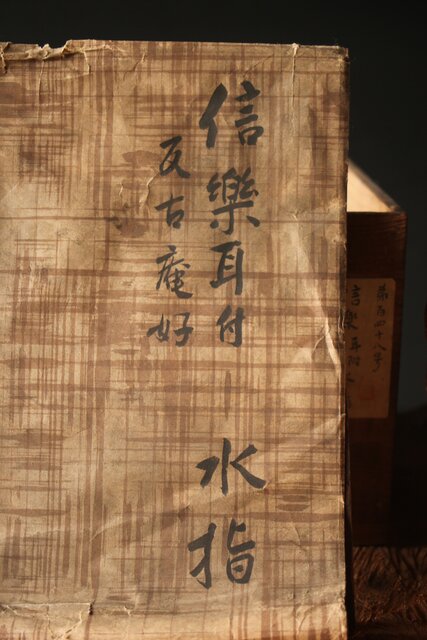 信樂耳付 水指
瓦古庵好
第百四十八号
信楽耳附